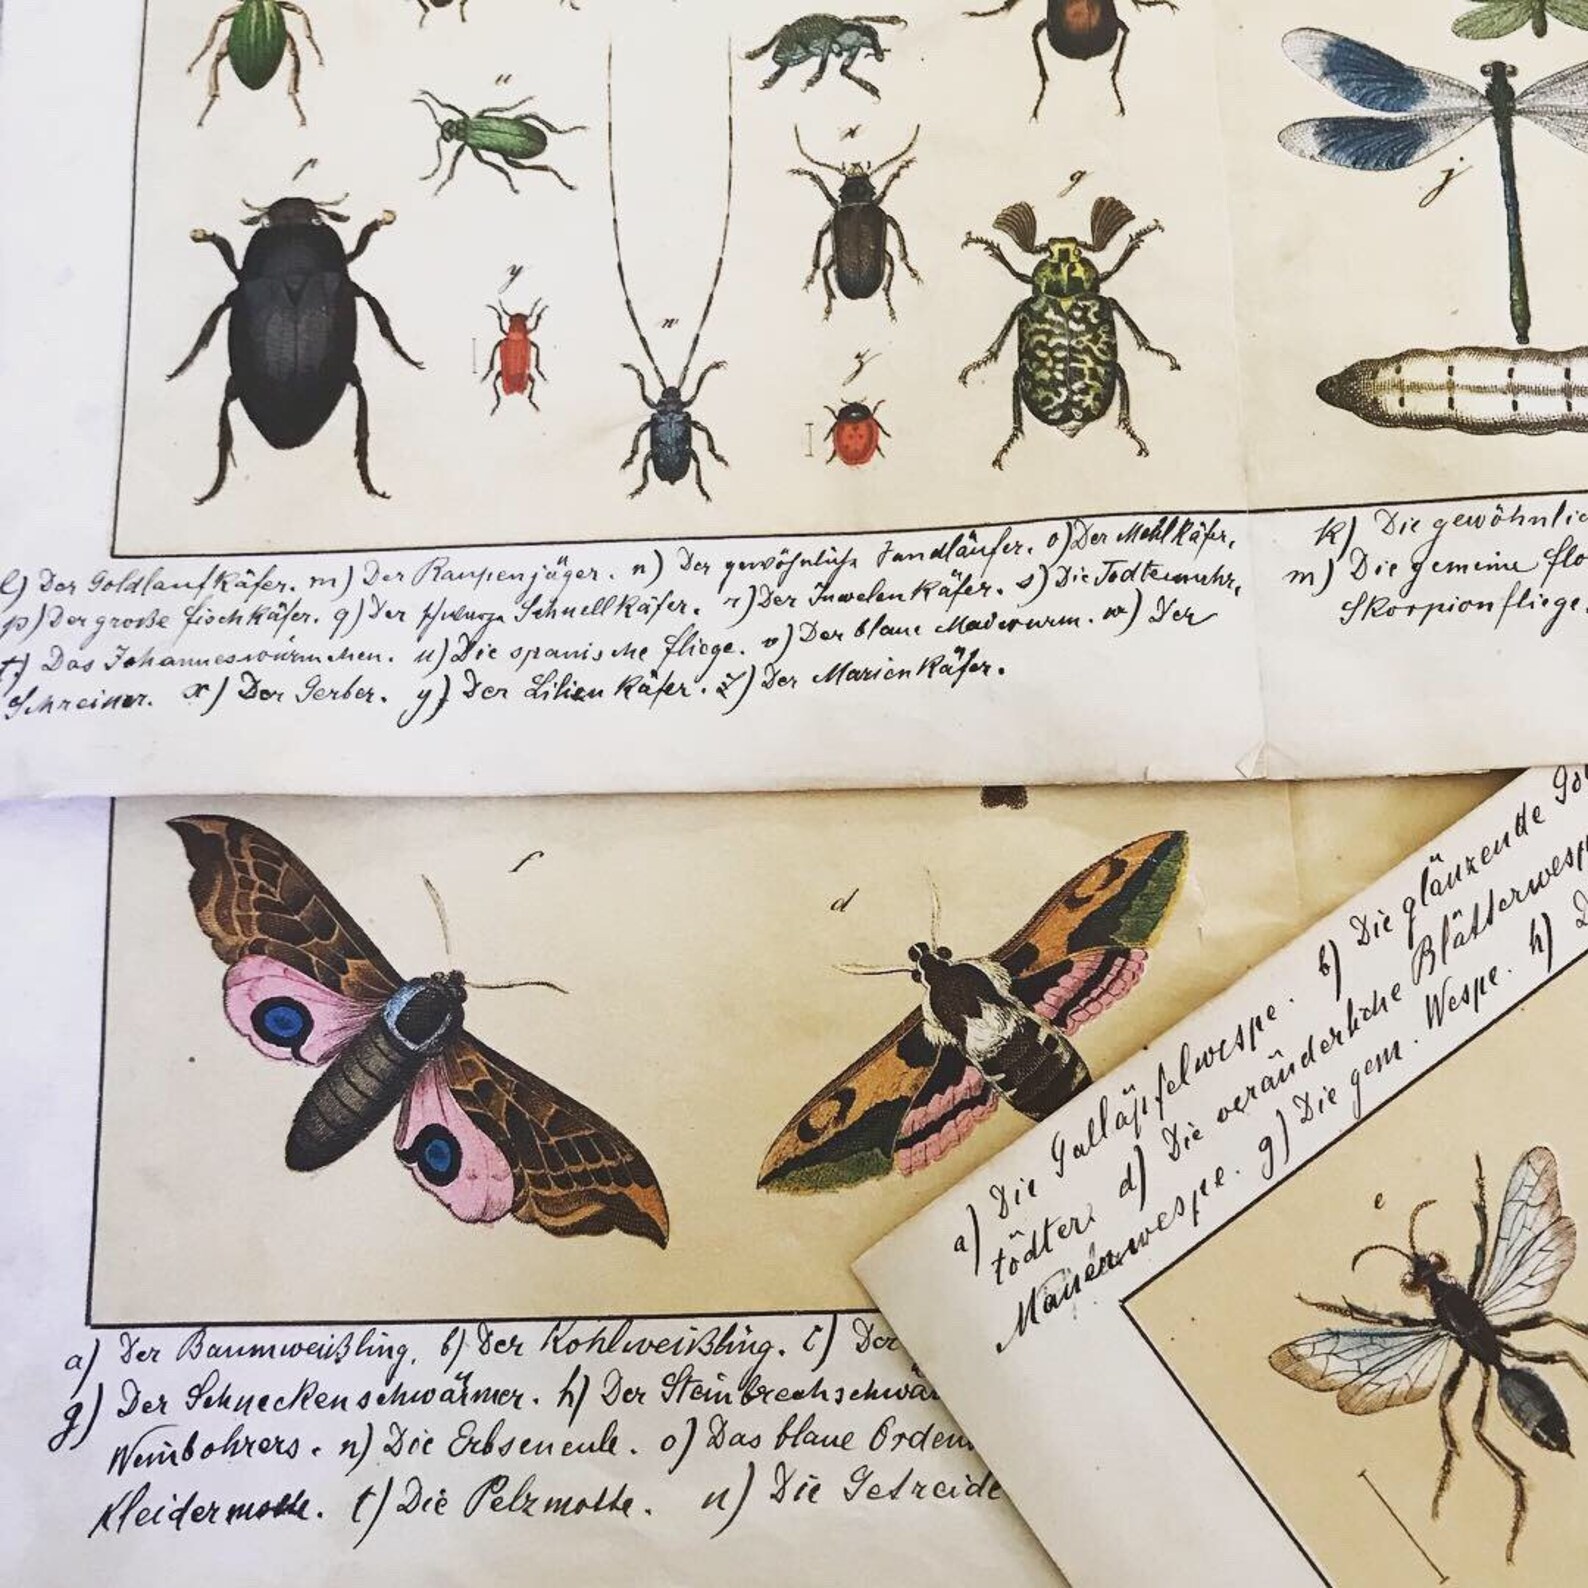 u
r
x
q
j
y
w
z
l) Der Goldlaufkäfer. m) Der Raupenjäger. n) Der gewöhnliche Sandläufer. o) Der Mehlkäfer.
p) Der große Fischkäfer. q) Der Schnellkäfer. r) Der Juwelenkäfer. s) Die Todtenuhr.
t) Das Johanneswürmchen. u) Die spanische Fliege. v) Der blaue Maiwurm. w) Der
Schreiner. x) Der Gerber. y) Der Lilienkäfer. z) Der Marienkäfer.
k) Die gewöhnlic
m) Die gemeine Flo
Skorpionfliege.
f
d
a) Der Baumweißling. b) Der Kohlweißling. c) Der
g) Der Schneckenschwärmer. h) Der Steinbrechschwär
Weinbohrers. n) Die Erbseneule. o) Das blaue Orden
Kleidermotte. t) Die Pelzmotte. u) Die Getreide
a) Die Galläpfelwespe. b) Die glänzende Go
tödter. d) Die veränderliche Blätterwesp
Mauerwespe. g) Die gem. Wespe. h) D
e